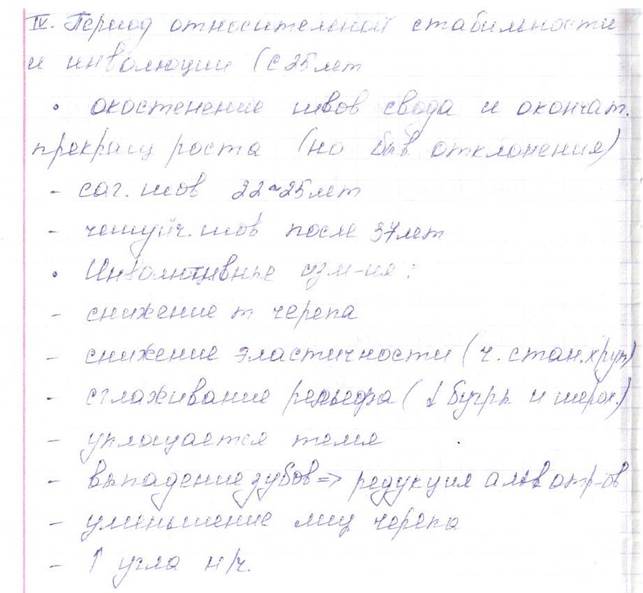 IV. Период относительной стабильности
и инволюции (с 25 лет
• окостенение швов свода и окончат.
прекращ роста (но быв отклонения)
- саг. шов 22-25 лет
- чешуйч. шов после 37 лет
• Инволютивные изм-ия:
- снижение m черепа
- снижение эластичности (ч. стан. хруп)
- сглаживание рельефа (↓ бугры и шерох.)
- уплощается темя
- выпадение зубов => редукция альв отр-ов
- уменьшение лиц черепа
- ↑ угла н/ч.